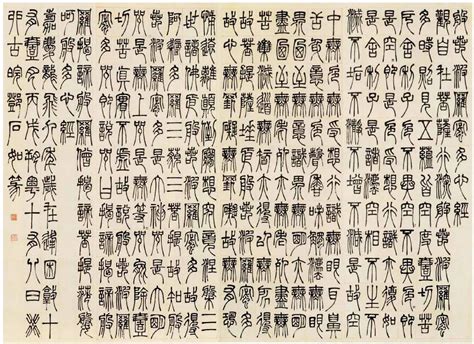 般若波羅蜜多心經
觀自在菩薩行深般若波羅蜜
多時照見五蘊皆空度一切苦
厄舍利子色不異空空不異色色即
是空空即是色受想行識亦復如
是舍利子是諸法空相不生不
滅不垢不淨不增不減是故空
中無色無受想行識無眼耳鼻
舌身意無色聲香味觸法無眼
界乃至無意識界無無明亦無無明
盡乃至無老死亦無老死盡無
苦集滅道無智亦無得以無所得
故菩提薩埵依般若波羅蜜多
故心無罣礙無罣礙故無有恐怖遠
離顛倒夢想究竟涅槃三
世諸佛依般若波羅蜜多故得
阿耨多羅三藐三菩提故知般
若波羅蜜多是大神咒是大明咒
是無上咒是無等等咒能除一切
苦真實不虛故說般若波羅
蜜多咒即說咒曰揭諦揭諦波
羅揭諦波羅僧揭諦菩提薩
訶般若波羅蜜多心經
鄧石如篆